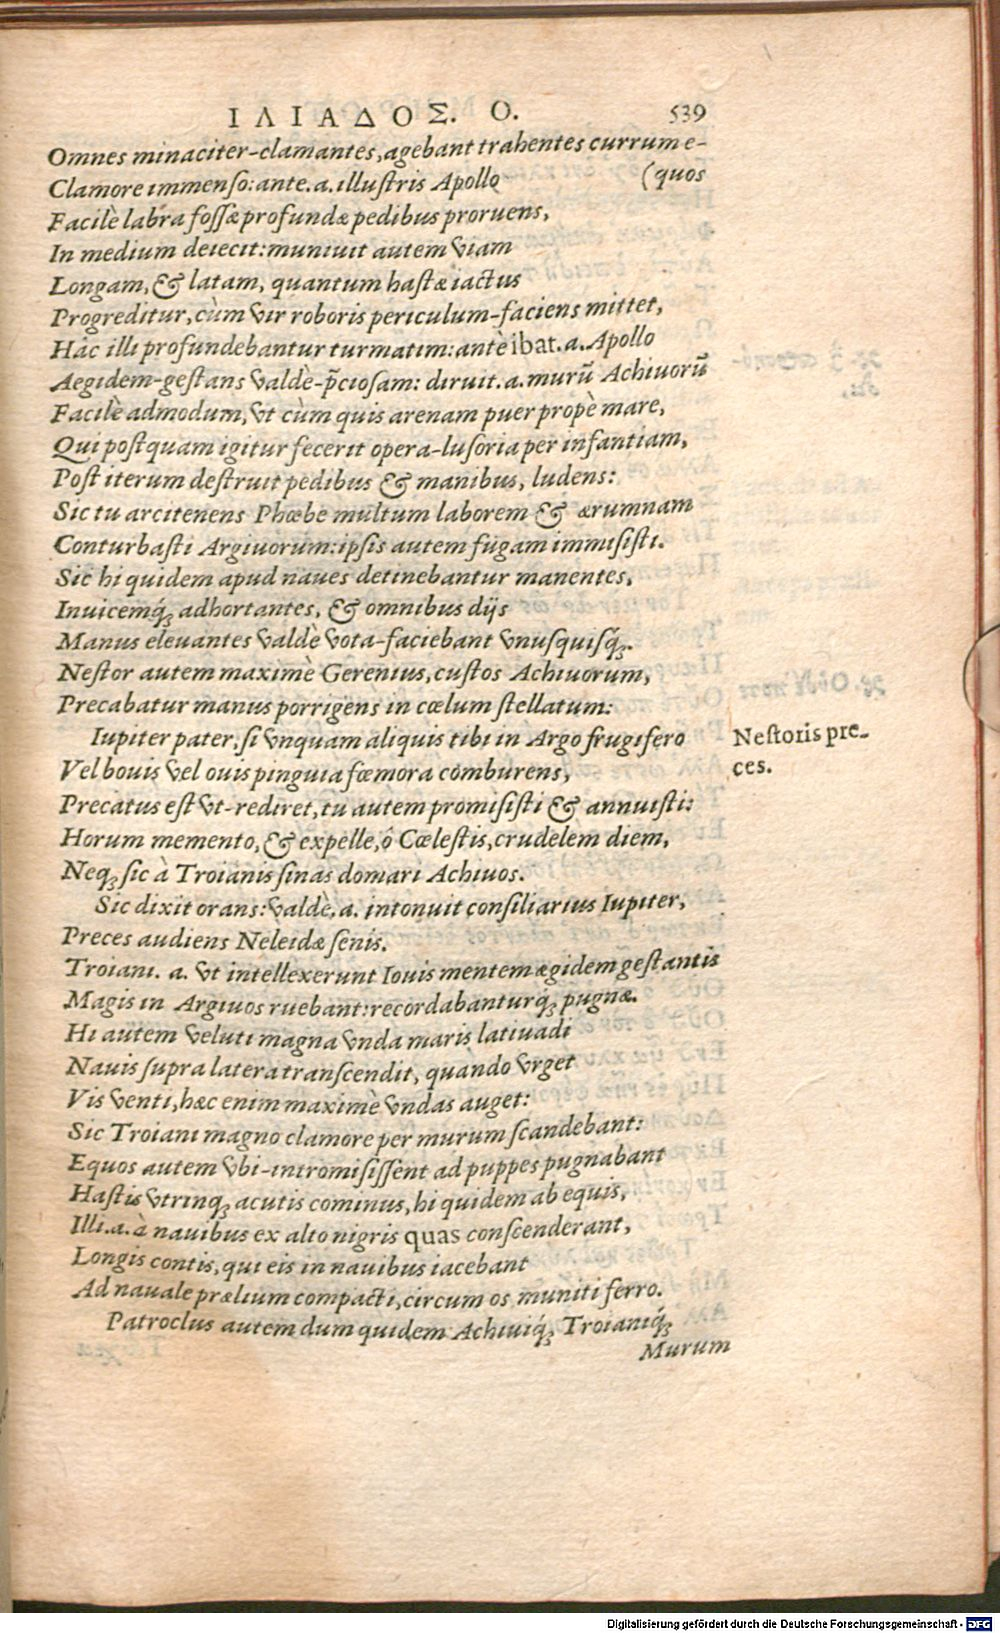 ΙΛΙΑΔΟΣ. Ο. 539
Omnes minaciter-clamantes, agebant trahentes currum e-
Clamore immenso: ante. a. illustris Apollo (quos
Facilè labra fossæ profundæ pedibus proruens,
In medium deiecit: muniuit autem viam
Longam, & latam, quantum hastæ iactus
Progreditur, cùm vir roboris periculum-faciens mittet,
Hàc illi profundebantur turmatim: antè ibat. a. Apollo
Aegidem-gestans valdè-p̃ciosam: diruit. a. murũ Achiuorũ
Facilè admodum, vt cùm quis arenam puer propè mare,
Qui postquam igitur fecerit opera-lusoria per infantiam,
Post iterum destruit pedibus & manibus, ludens:
Sic tu arcitenens Phœbe multum laborem & ærumnam
Conturbasti Argiuorum: ipsis autem fugam immisisti.
Sic hi quidem apud naues detinebantur manentes,
Inuicemq́; adhortantes, & omnibus dijs
Manus eleuantes valdè vota-faciebant vnusquisq́;.
Nestor autem maximè Gerenius, custos Achiuorum,
Precabatur manus porrigens in cœlum stellatum:
Iupiter pater, si vnquam aliquis tibi in Argo frugifero
Nestoris pre-
ces.
Vel bouis vel ouis pinguia fœmora comburens,
Precatus est vt-rediret, tu autem promisisti & annuisti:
Horum memento, & expelle, ô Cœlestis, crudelem diem,
Neq; sic à Troianis sinas domari Achiuos.
Sic dixit orans: valdè. a. intonuit consiliarius Iupiter,
Preces audiens Neleidæ senis.
Troiani. a. vt intellexerunt Iouis mentem ægidem gestantis
Magis in Argiuos ruebant: recordabanturq́; pugnæ.
Hi autem veluti magna vnda maris latiuadi
Nauis supra latera transcendit, quando vrget
Vis venti, hæc enim maximè vndas auget:
Sic Troiani magno clamore per murum scandebant:
Equos autem vbi-intromisissent ad puppes pugnabant
Hastis vtrinq; acutis cominus, hi quidem ab equis,
Illi. a. à nauibus ex alto nigris quas conscenderant,
Longis contis, qui eis in nauibus iacebant
Ad nauale prælium compacti, circum os muniti ferro.
Patroclus autem dum quidem Achiuiq́; Troianiq́;
Murum
Digitalisierung gefördert durch die Deutsche Forschungsgemeinschaft - DFG